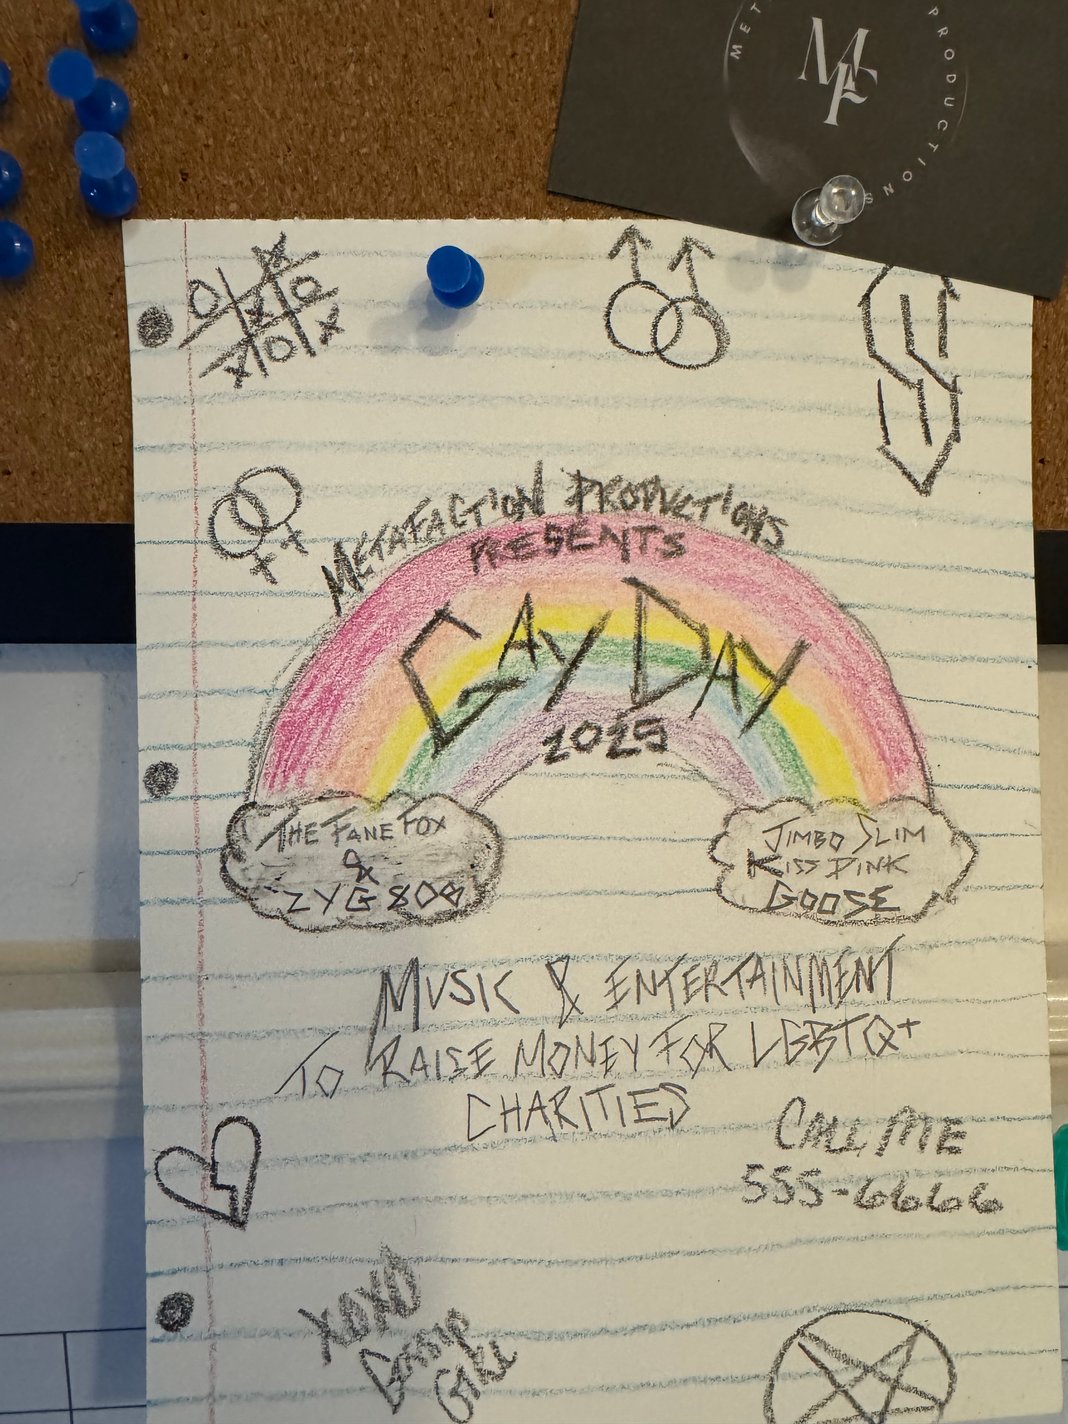 MET
PRODUCTIONS
MF
METAFACTION PRODUCTIONS
PRESENTS
GAY DAY
2025
THE FANE FOX
&
ZYG 808
JIMBO SLIM
KISS PINK
GOOSE
MUSIC & ENTERTAINMENT
TO RAISE MONEY FOR LGBTQ+
CHARITIES
CALL ME
555-6666
XOXO
GOSSIP
GIRL